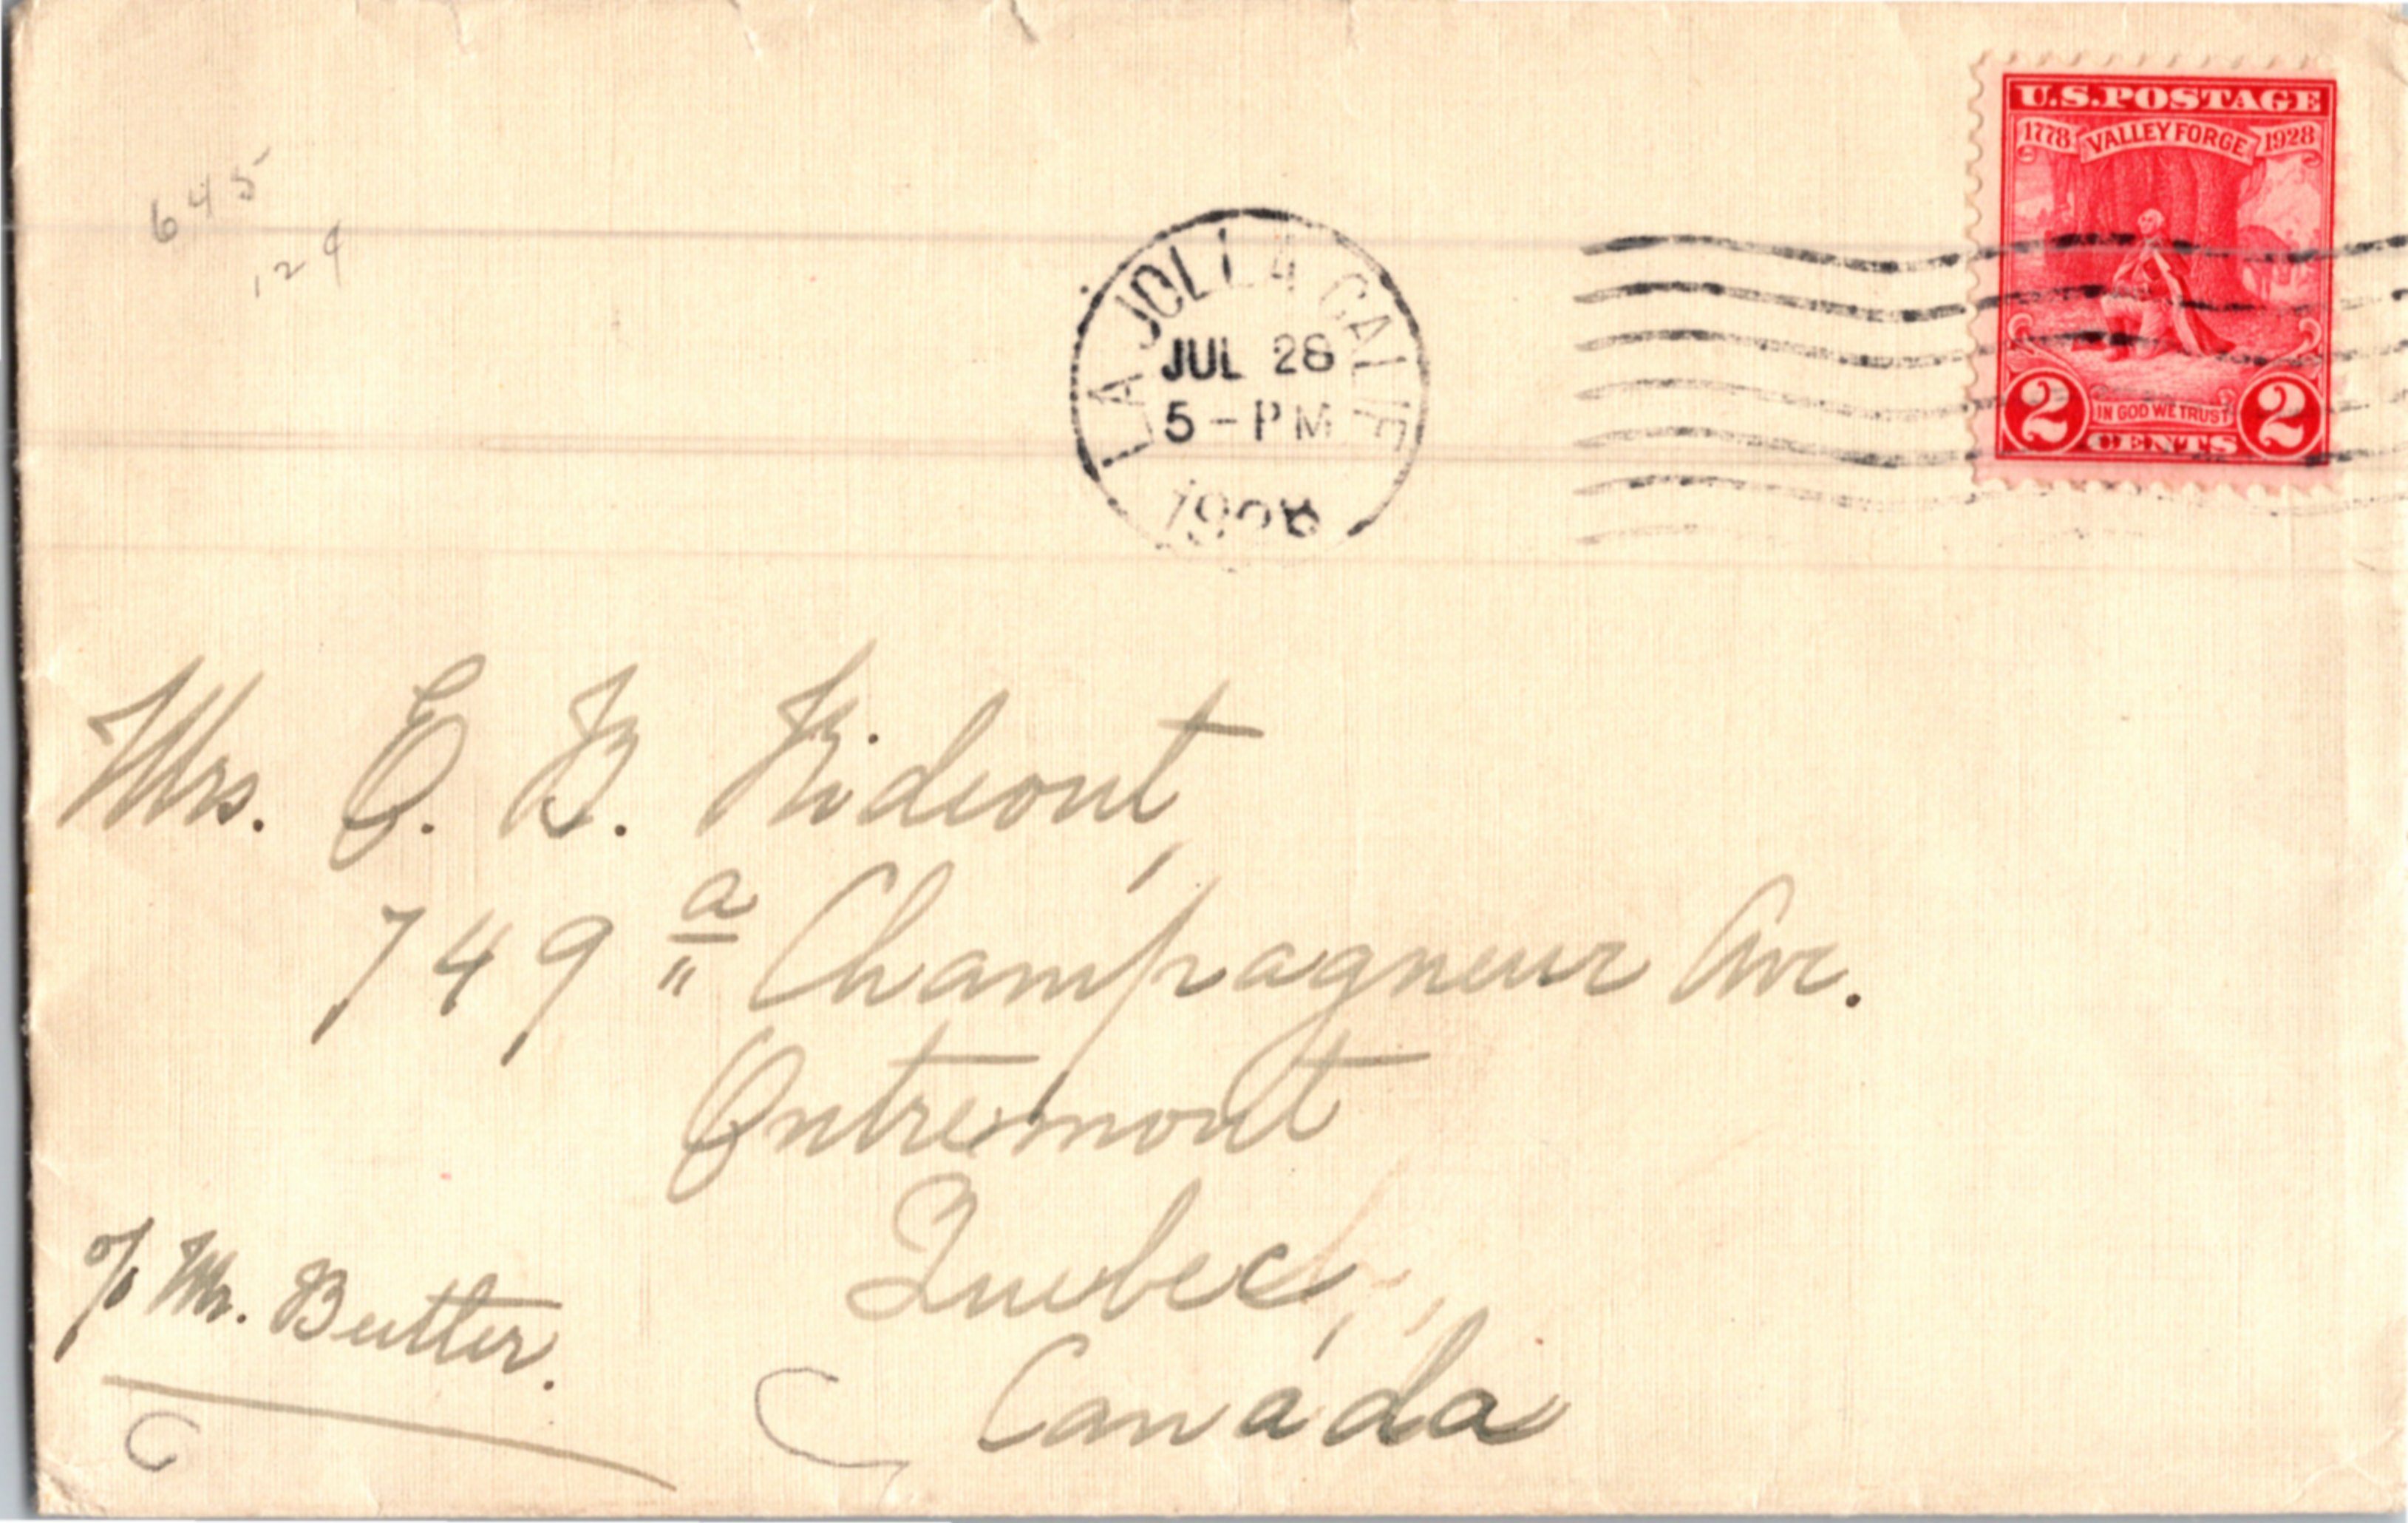 645
129
LA JOLLA CALIF
JUL 28
5-PM
1928
U.S. POSTAGE
1778 VALLEY FORGE 1928
2 IN GOD WE TRUST 2
CENTS
Mrs. E. B. Rideout,
749 a Champagneur Ave.
Outremont
Quebec,
Canada
c/o Mr. Butler.